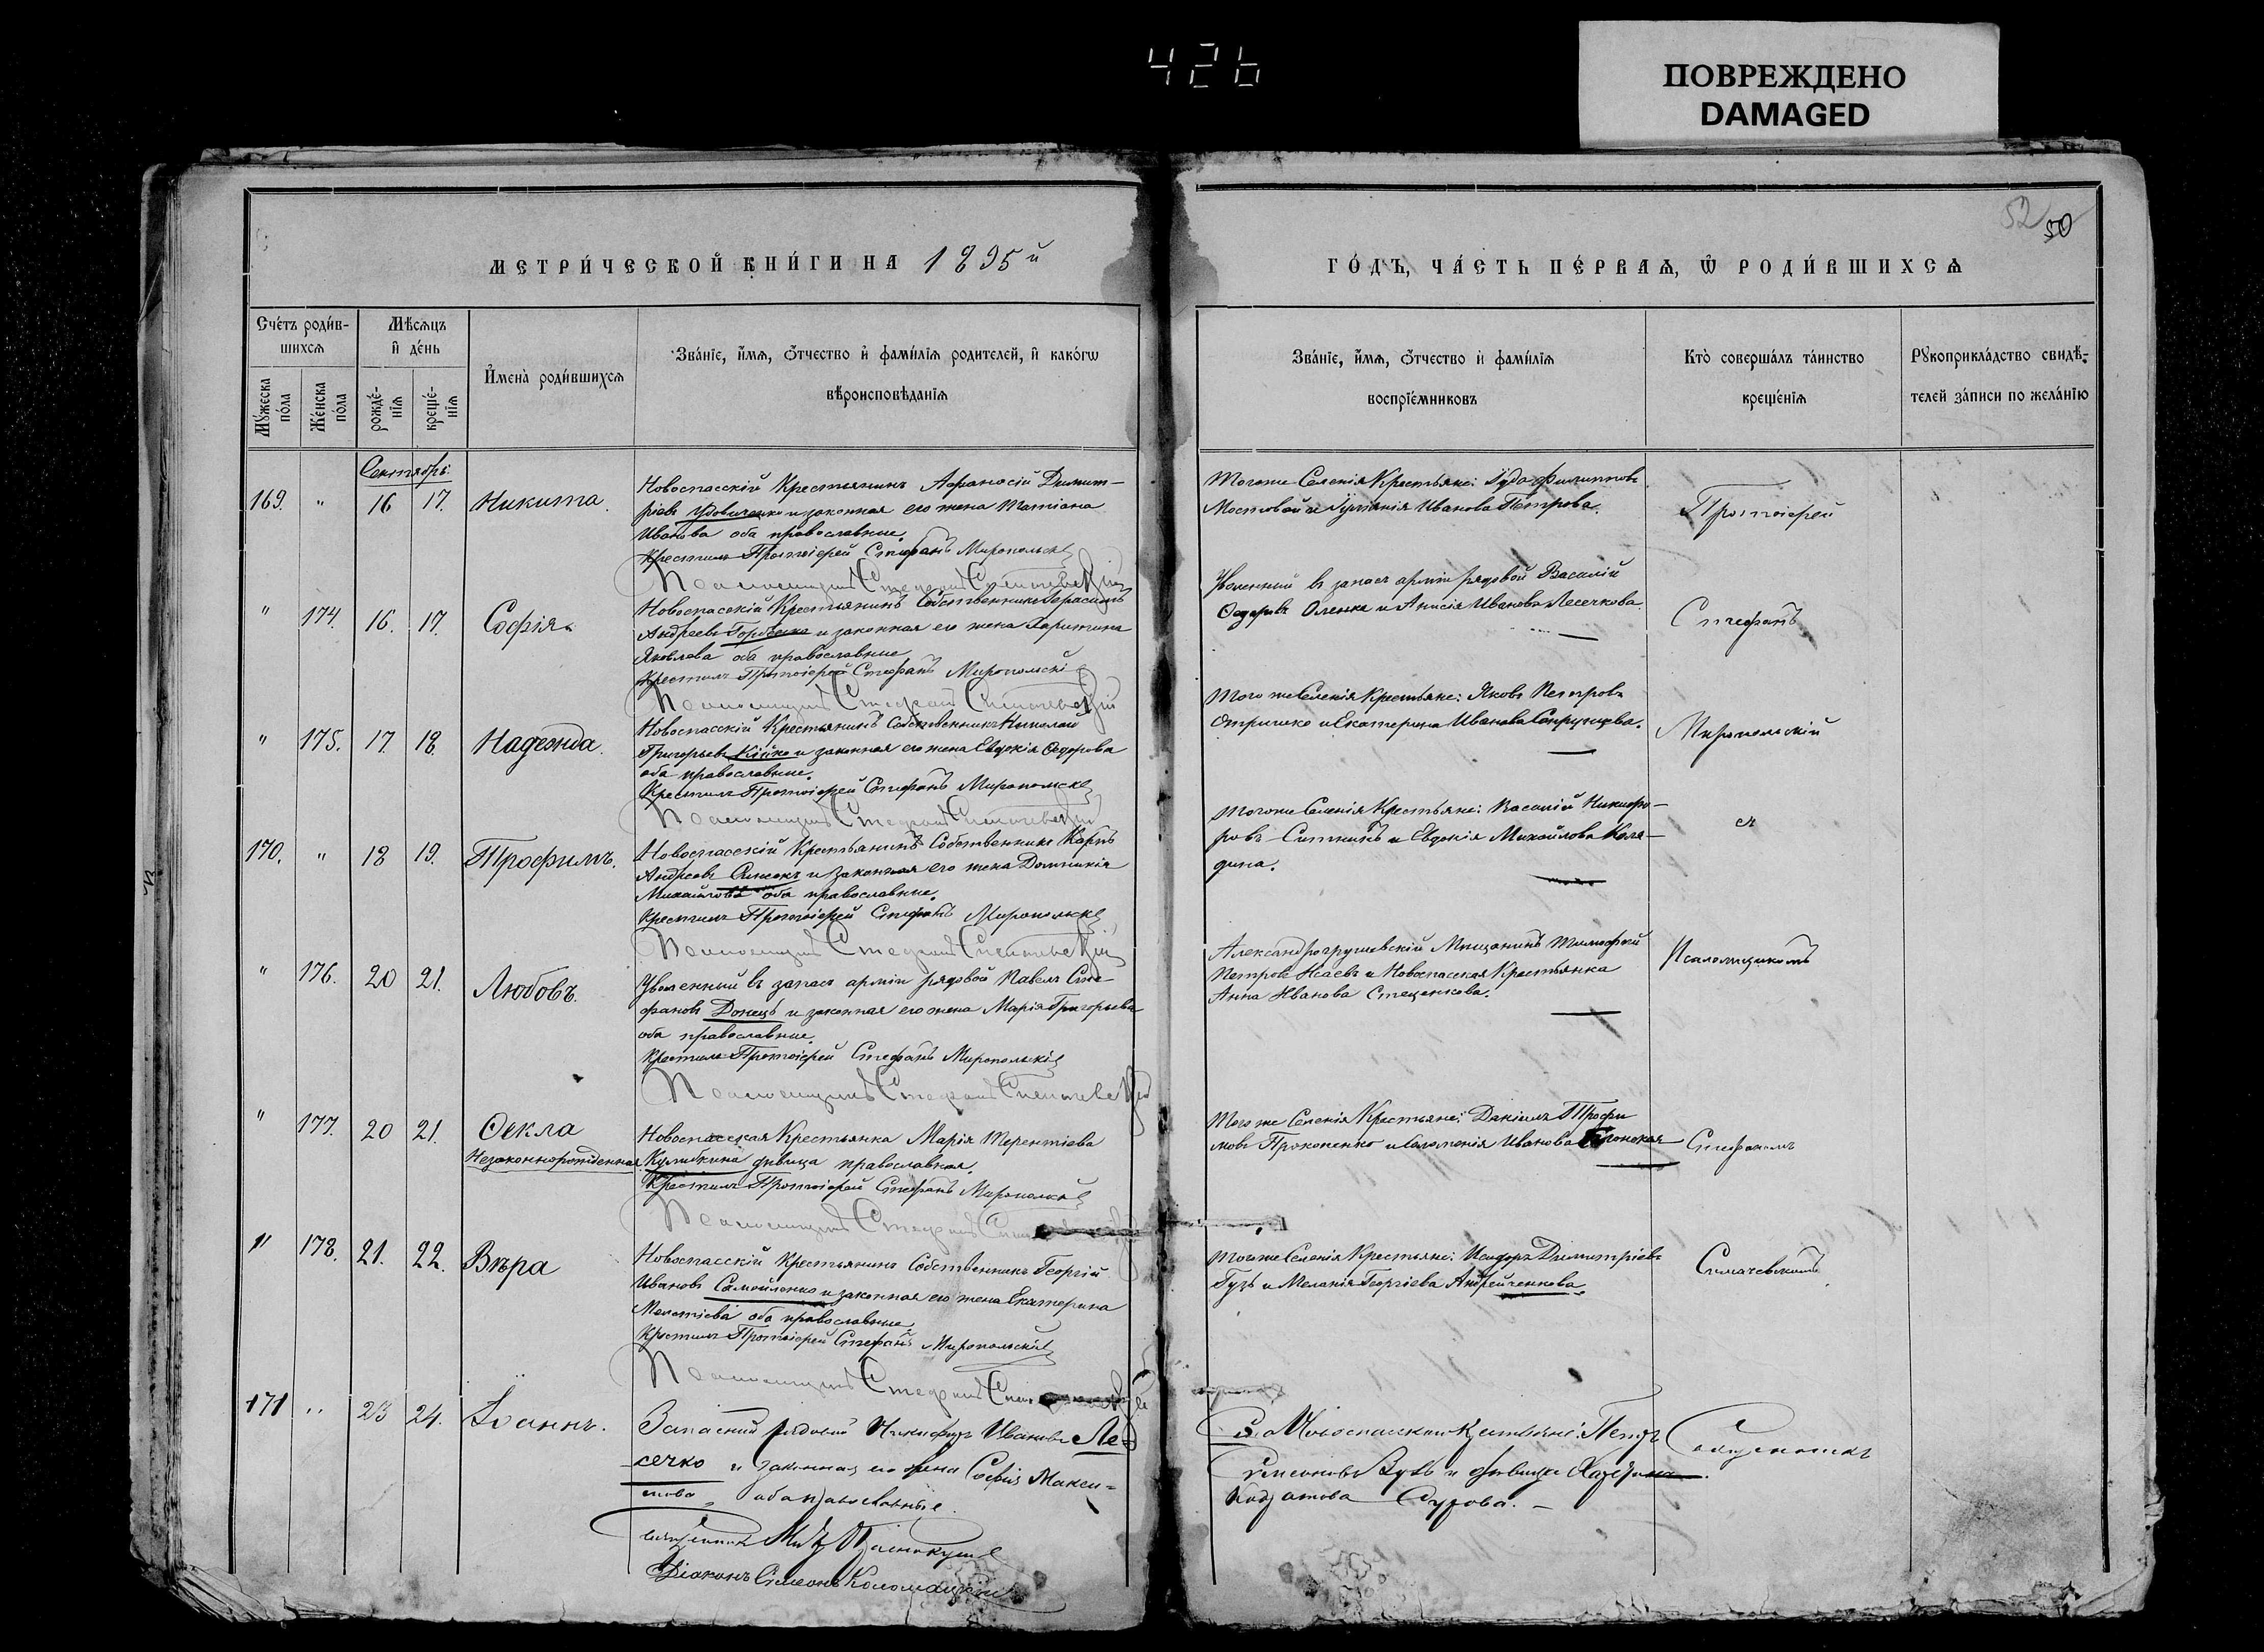 426
ПОВРЕЖДЕНО
DAMAGED
52 50
МЕТРИ́ЧЕСКОЙ КНИ́ГИ НА 1895й
ГО́ДЪ, ЧА́СТЬ ПЕ́РВАѦ, Ѿ РОДИ́ВШИХСѦ
Сче́тъ роди́в-
шихсѧ
Мѣ́сѧцъ
и҆ де́нь
Мꙋ́жеска по́ла
Же́нска по́ла
рожде́-нїѧ
креще́-нїѧ
И҆мена̀ роди́вшихсѧ
Зва́нїе, и҆́мѧ, ѻ҆́тчество и҆ фами́лїѧ родителей, и҆ како́гѡ
вѣроисповѣ́данїѧ
Зва́нїе, и҆́мѧ, ѻ҆́тчество и҆ фами́лїѧ
воспрїе́мниковъ
Кто̀ соверша́лъ та́инство
креще́нїѧ
Рꙋкоприкла́дство свидѣ́-
телей за́писи по жела́нїю
Сентябрь.
169. " 16 17. Никита.
Новоспасскій Крестьянинъ Афанасій Димит-
ріевъ Удовиченко и законная его жена Татіана
Иванова оба православные.
Крестилъ Протоіерей Стефанъ Миропольскій
Псаломщикъ Стефанъ
Тогоже Селенія Крестьяне: Іуда Филипповъ
Мостовой и Іуліанія Иванова Петрова.
Протоіерей
" 174. 16. 17. Софія.
Новоспасскій Крестьянинъ Собственникъ Герасимъ
Андреевъ и законная его жена Харитина
Яковлева оба православные
Крестилъ Протоіерей Стефанъ Миропольскій
Псаломщикъ Стефанъ
Уволенный въ запасъ арміи рядовой Василій
Ѳедоровъ Оленка и Анисія Иванова Лесечкова.
Стефанъ
" 175. 17. 18 Надежда.
Новоспасскій Крестьянинъ Собственникъ Николай
Григорьевъ Кійко и законная его жена Евдокія Ѳедорова
оба православные.
Крестилъ Протоіерей Стефанъ Миропольскій
Псаломщикъ Стефанъ
Того же Селенія Крестьяне: Яковъ Петровъ
и Екатерина Иванова
Миропольскій
170. " 18 19. Трофимъ.
Новоспасскій Крестьянинъ Собственникъ Карпъ
Андреевъ и законная его жена Домникія
Михайлова оба православные.
Крестилъ Протоіерей Стефанъ Миропольскій
Псаломщикъ Стефанъ
Тогоже Селенія Крестьяне: Василій Никифо-
ровъ Ситникъ и Евдокія Михайлова Коля-
дина.
съ
" 176. 20 21. Любовь.
Уволенный въ запасъ арміи рядовой Павелъ Сте-
фановъ Донецъ и законная его жена Марія Григорьева
оба православные.
Крестилъ Протоіерей Стефанъ Миропольскій
Псаломщикъ Стефанъ
Александрогрушевскій Мещанинъ Тимофей
Петровъ Исаевъ и Новоспасская Крестьянка
Анна Иванова Стеценкова.
Псаломщикомъ
" 177. 20 21. Ѳекла
Незаконнорожденная
Новоспасская Крестьянка Марія Терентіева
Кулибкина дѣвица православная.
Крестилъ Протоіерей Стефанъ Миропольскій
Псаломщикъ Стефанъ
Того же Селенія Крестьяне: Даніилъ Трофи
мовъ Прокопенко и Соломонія Иванова
Стефаномъ
" 178. 21. 22. Вѣра
Новоспасскій Крестьянинъ Собственникъ Георгій
Ивановъ Самойленко и законная его жена Екатерина
Мелетіева оба православные.
Крестилъ Протоіерей Стефанъ Миропольскій
Псаломщикъ Стефанъ
Тогоже Селенія Крестьяне: Исидоръ Димитріевъ
Гузь и Меланія Георгіева Андрейченкова.
171 " 23 24. Іоаннъ.
Запасный рядовой Никифоръ Ивановъ Ле-
сечко и законная его жена Софія Макси-
мова, оба православные.
Священникъ
Діаконъ Симеонъ Коломацкій
с. Новоспасскаго крестьяне: Петръ
Симеоновъ и дѣвица
Кодратова Сурова.
Священникъ